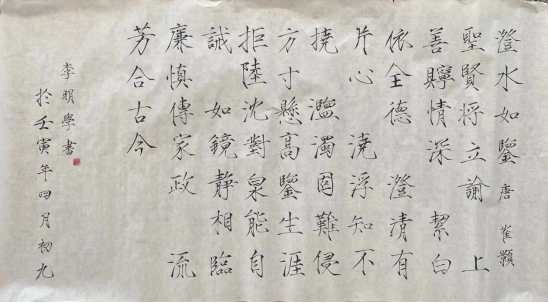 澄水如鑒 唐 崔顥
聖賢将立諭 上
善貯情深 絜白
依全德 澄清有
片心 澆浮知不
撓 濫濁固難侵
方寸懸高鑒生涯
拒陸沈對泉能自
誡 如鏡静相臨
廉慎傳家政 流
芳合古今
李明學書
於壬寅年四月初九